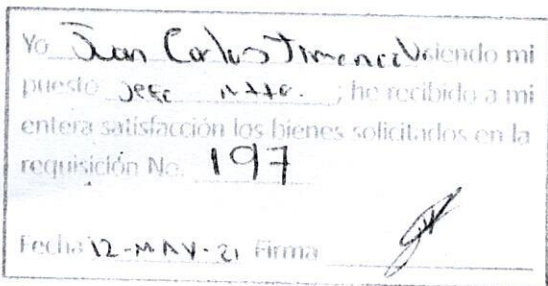 Yo Juan Carlos Jimenez V. siendo mi
puesto Jefe Mtto. ; he recibido a mi
entera satisfacción los bienes solicitados en la
requisición No. 197
Fecha 12-MAY-21 Firma